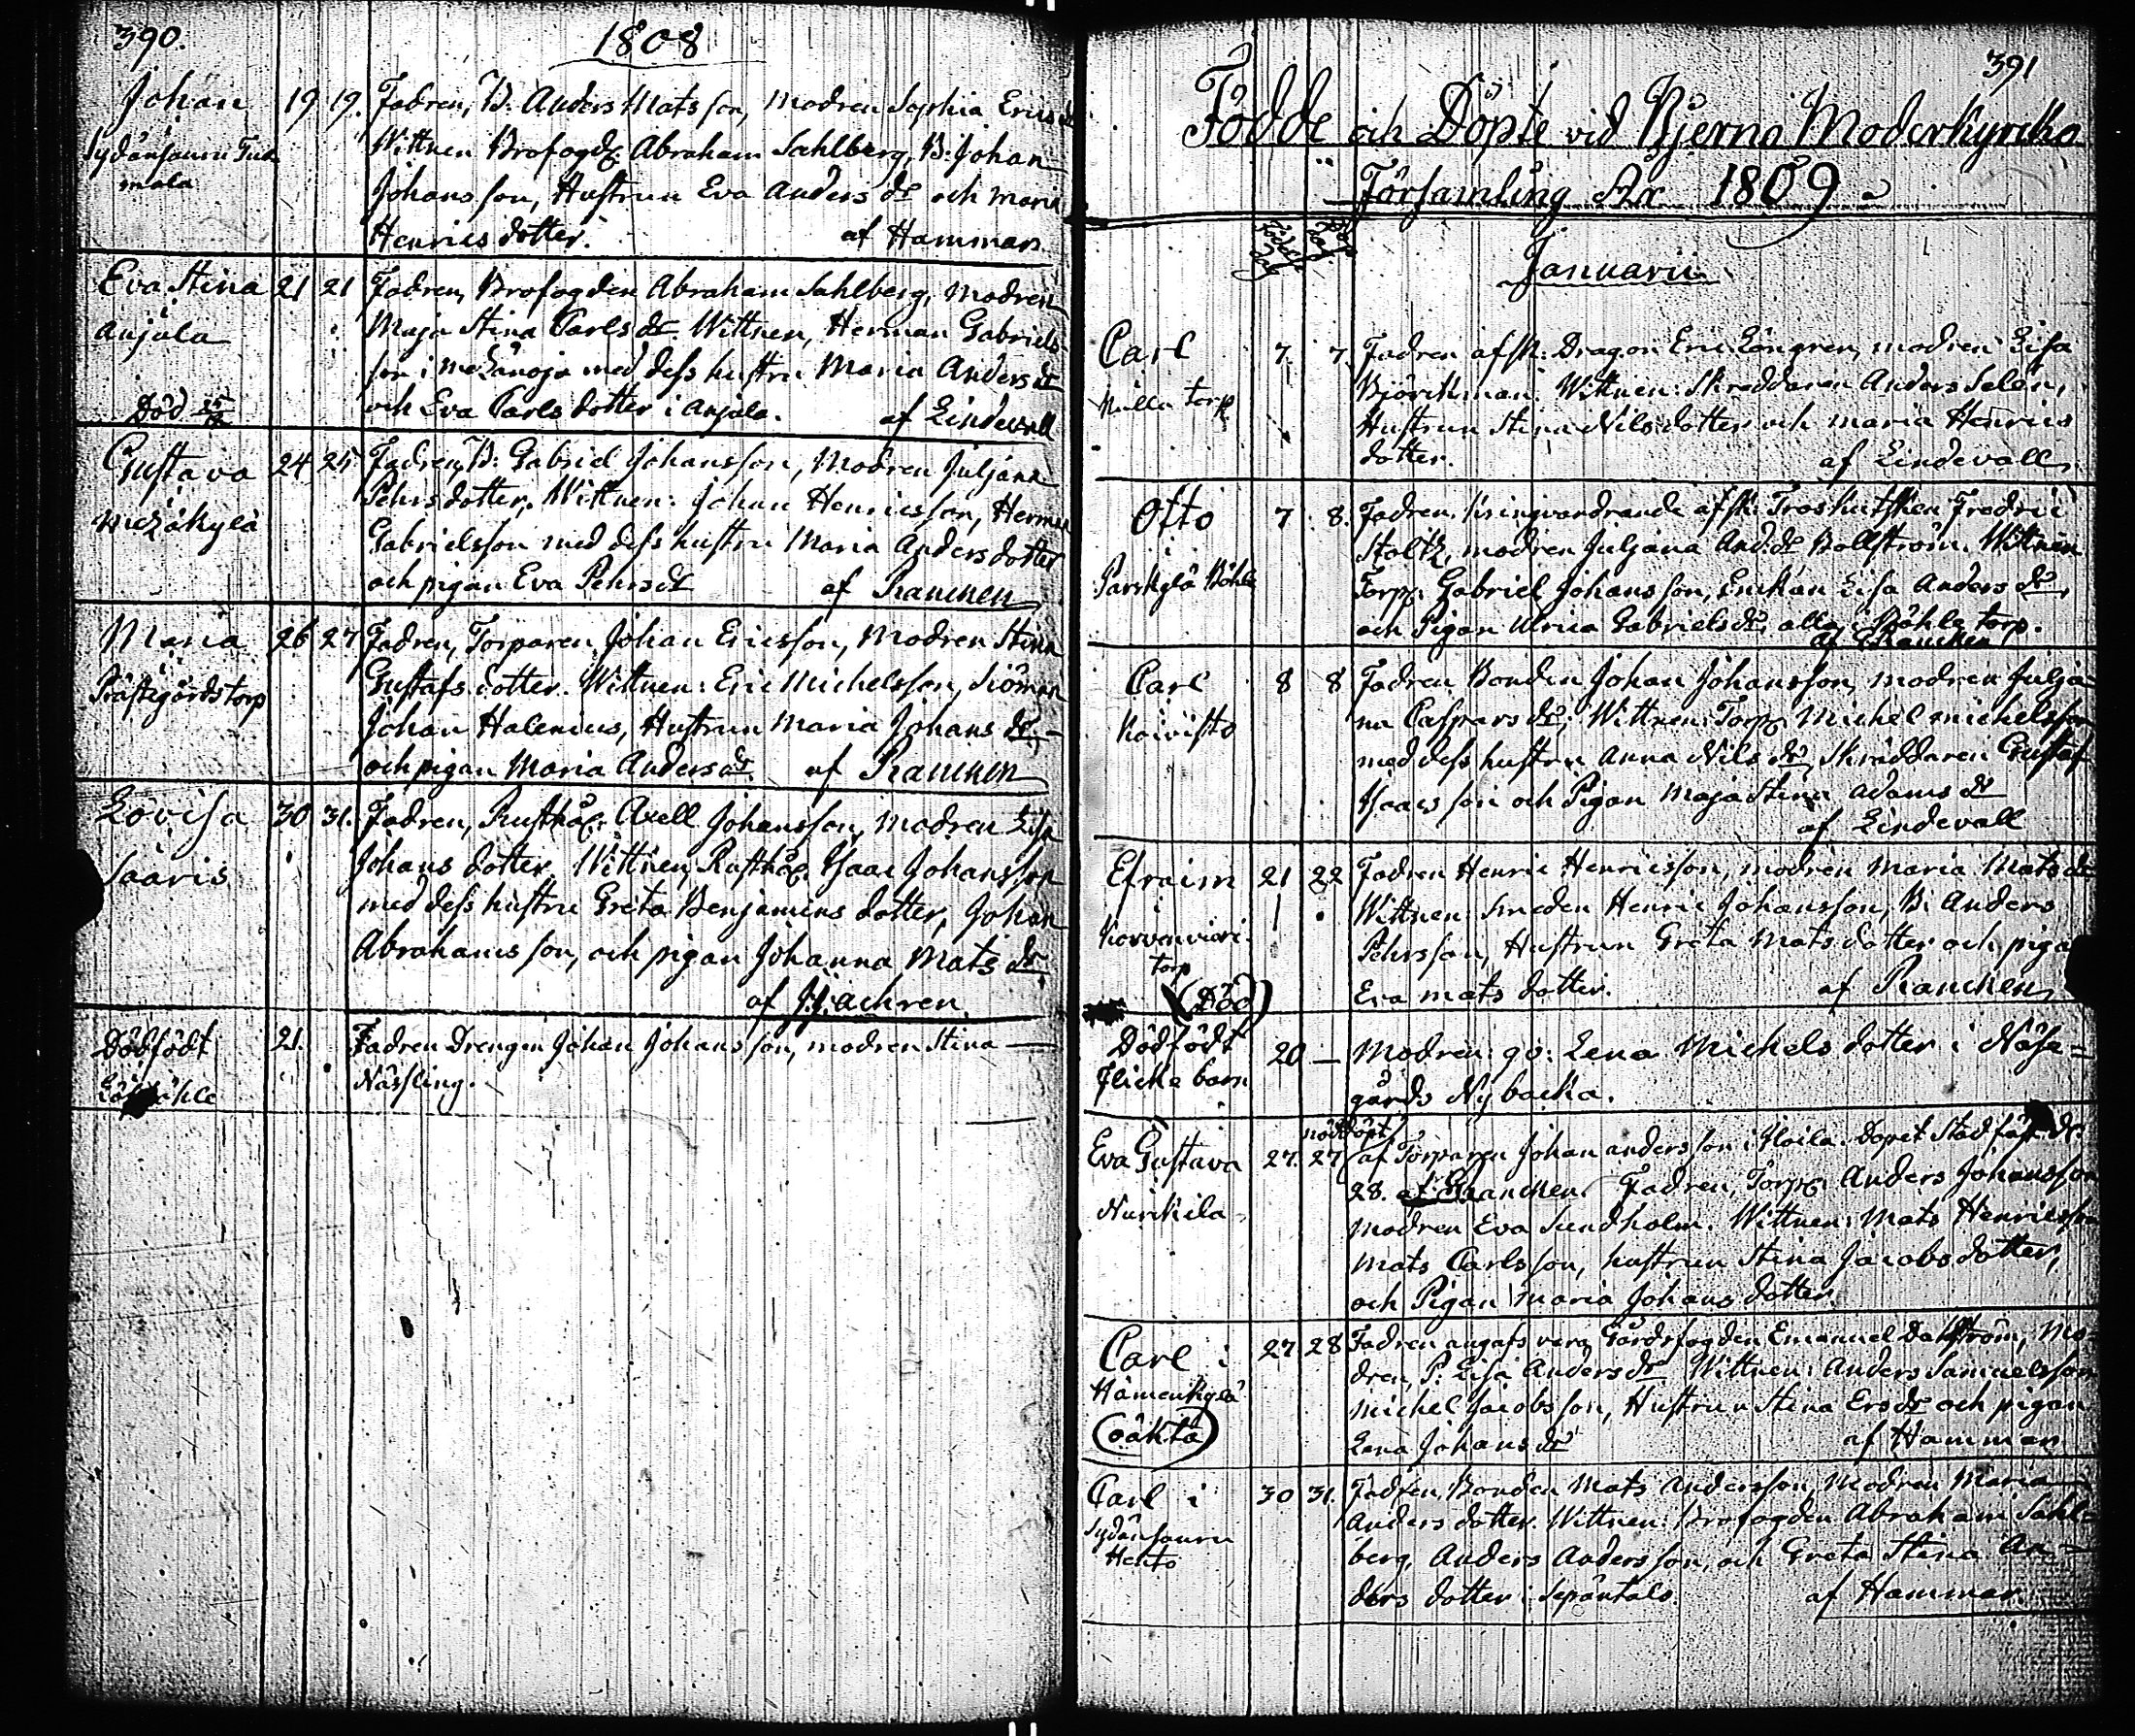 390.
1808
Johan 19 19. Fadren, B: Anders Matsson, modren Sophia Erics
Sydänsauru Tuk Wittnen Brofogd: Abraham Sahlberg, B: Johan
mala Johansson, Hustrun Eva Anders dr och maria
Henrics dotter. af Hammar
Eva Stina 21 21 Fadren, Brofogden Abraham Sahlberg, Modren
anjala Maja Stina Carls dr Wittnen, Herman Gabriels
son i med dess hustru Maria Anders dr
Död och Eva Carls dotter i anjala. af Lindevall
Gustava 24 25 Fadren, B: Gabriel Johansson, Modren Juljana
i Pehrs dotter, Wittnen: Johan Henricsson, Herman
Gabrielsson med dess hustru Maria Anders dotter
och pigan Eva Pehrs dr af Rancken
Maria 26 27 Fadren, Torparen Johan Ericsson, Modren Stina
Prästegårds torp Gustafs dotter. Wittnen: Eric Michelsson, Siöman
Johan Halenius, Hustrun Maria Johans dr,
och pigan Maria Anders dr. af Rancken
Lovisa 30 31. Fadren, Rusthål: Axell Johansson, modren Lisa
Johans dotter. Wittnen, Rusthål: Isaac Johansson
Saaris med dess hustru Greta Benjamins dotter, Johan
Abrahamsson, och pigan Johanna Mats dr
af Hj: achren
Dödfödt 21. Fadren Drengen Johan Johansson, modren Stina
Nässling.
391
Födde och Döpte vid Bjerno Moderkyrcko
Församling År 1809
Födelse dag Döp dag
Januarii
Carl 7 7. Fadren afsk: Dragon Eric Löngren, modren Lisa
torp Björckman. Wittnen: Skreddaren Anders Selen,
Hustrun Stina Nilsdotter och maria Henrics
dotter. af Lindevall
Otto 7 8. Fadren, kringvandrande afsk: Troskutsken Fredric
i Staltz, modren Juljana And: dr Bollström. Wittnen
Parskylä Böhle Torp: Gabriel Johansson, Enckan Lisa Anders dr,
och Pigan Ulrica Gabriels dr, alla i Böhle torp.
af Rancken
Carl 8 8 Fadren Bonden Johan Johansson, modren Julja-
Koivisto na Caspars dr; Wittnen: Torp: Michel Michelsson
med dess hustru Anna Nils dr, Skräddaren Gustaf
Isaacsson och Pigan Maja Stina Adams dr
af Lindevall
Efraim 21 22 Fadren Henric Henricsson, modren Maria Mats dr
i Wittnen Smeden Henric Johansson, B: Anders
Korvenvieri Pehrsson, Hustrun Greta Mats dotter och pigan
torp
(Död) Eva mats dotter. af Rancken
Dödfödt 20 — Modren: qv: Lena Michels dotter i Näse=
flicke barn gårds Nybacka.
nöddöpt
Eva Gustava 27. 27 af Torparen Johan andersson i Iloila. Dopet Stadfäst d:
28. af Rancken. Fadren, Torp: Anders Johansson
Nurkkila modren Eva Sundholm. Wittnen: Mats Henricsson
Mats Carlsson, hustrun Stina Jacobsdotter,
och Pigan Maria Johans dotter.
Carl i 27 28 Fadren angafs vara Gårdsfogden Emanuel Dahlström, Mo-
Hämenkylä dren, P: Lisa Anders dr Wittnen: Anders Samuelsson
(oäkta) Michel Jacobsson, Hustrun Stina Ers dr och pigan
Lena Johans dr af Hammar
Carl i 30 31. Fadren, Bonden Mats Andersson, Modren Maria
Sydänsauru Anders dotter. Wittnen: Brofogden Abraham Sahl=
Heicko berg, Anders Andersson, och Greta Stina An=
ders dotter i Sepäntalo. af Hammar